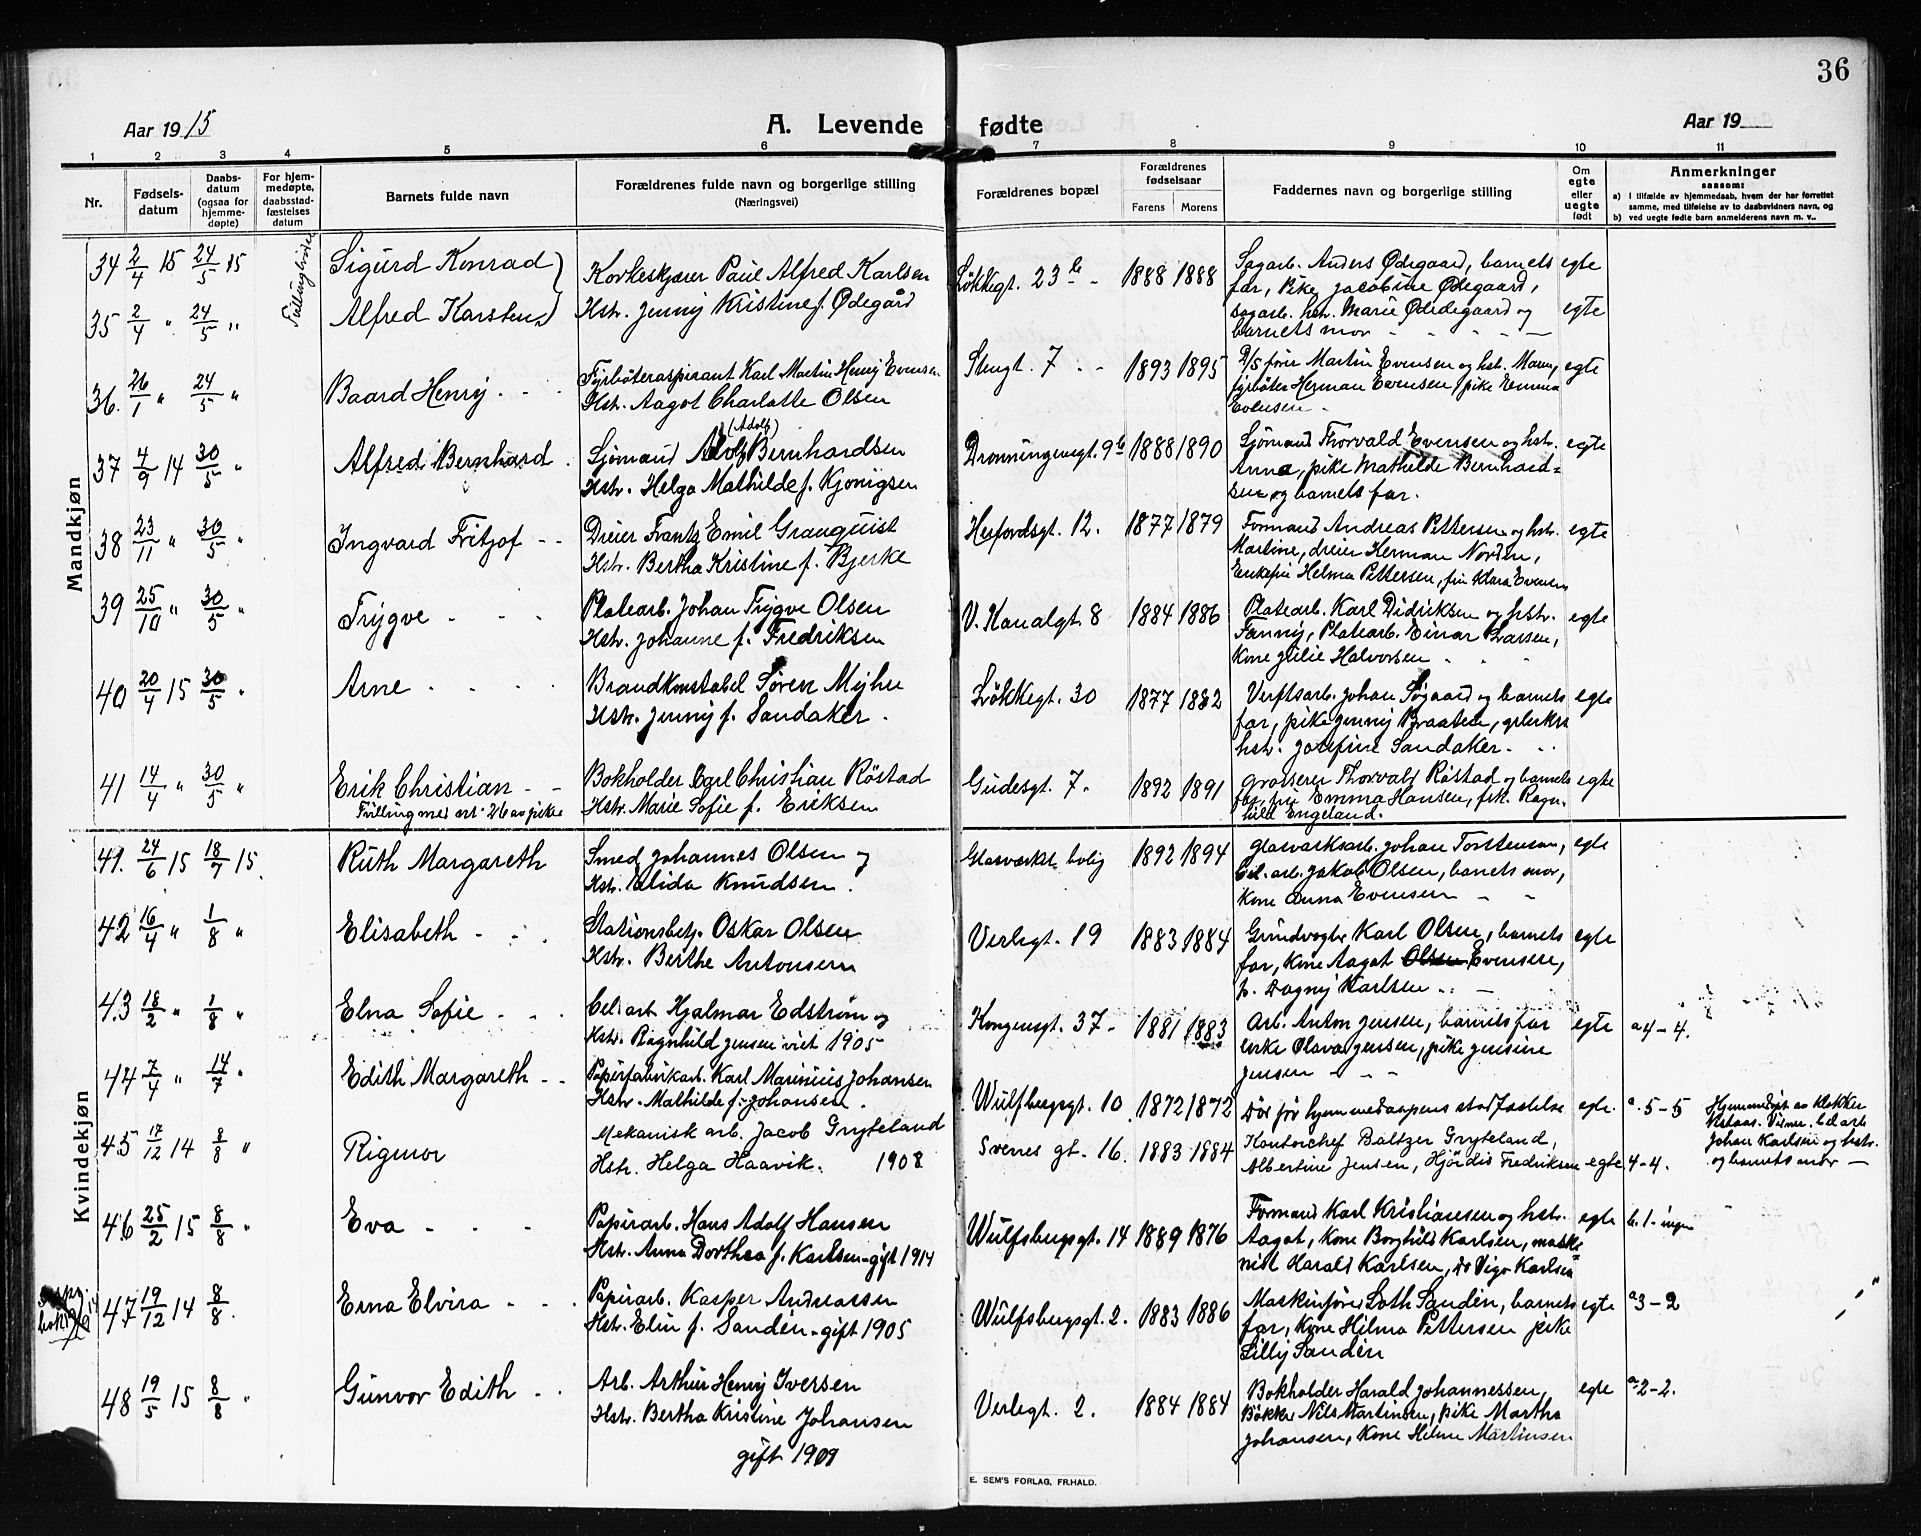 36
Aar 19 15
A. Levende
fødte
Aar 19
1 2 3 4 5 6 7 8 9 10 11
Nr.
Fødsels-
datum
Daabs-
datum
(ogsaa for
hjemme-
døpte)
For hjem-
medøpte,
daabsstad-
fæstelses
datum
Barnets fulde navn
Forældrenes fulde navn og borgerlige stilling
(Næringsvei)
Forældrenes bopæl
Forældrenes
fødselsaar
Farens Morens
Faddernes navn og borgerlige stilling
Om
egte
eller
uegte
født
Anmerkninger
saasom:
a) i tilfælde av hjemmedaab, hvem der har forrettet
samme, med tilføielse av to daabsvidners navn, og
b) ved uegte fødte barn anmelderens navn m. v..
Mandkjøn
34 2/4 15 24/5 15 Sigurd Konrad
Korkeskjærer Paul Alfred Karlsen
Hstr. Jenny Kristine f. Ødegård
Løkkegt. 23 b 1888 1888
Sagarb. Anders Ødegaard, barnets
far, Pike Jacobine Ødegaard,
sagarb. hstr. Marie Ødegaard og
barnets mor
egte
35 2/4 " 24/5 " Alfred Karsten
egte
36. 26/1 " 24/5 " Baard Henry
Fyrbøteraspirant Karl Martin Henry Evensen
Hstr. Aagot Charlotte Olsen
Stengt. 7 1893 1895
D/S fører Martin Evensen og hst. Maren,
fyrbøter Herman Evensen, pike Emma
Evensen
egte
37 4/9 14 30/5 " Alfred Bernhard
(Adolf)
Sjømand Adolf Bernhardsen
Hstr. Helga Mathilde f. Kjønigsen
Dronningensgt. 9b 1888 1890
Sjømand Thorvald Evensen og hstr.
Anna, pike Mathilde Bernhard=
sen og barnets far.
egte
38 23/11 " 30/5 " Ingvard Fritjof
Dreier Frantz Emil Granquist
Hstr. Bertha Kristine f. Bjerke
Herfordsgt. 12. 1877 1879
Formand Andreas Pettersen og hst.
Martine, dreier Herman Norden,
Enkefru Helma Pettersen, fru Klara Evensen
egte
39 25/10 " 30/5 " Trygve
Platearb. Johan Trygve Olsen
Hstr. Johanne f. Fredriksen
V. Kanalgt. 8 1884 1886
Platearb. Karl Didriksen og hstr.
Fanny, Platearb. Einar Larsen,
Kone Julie Halvorsen
egte
40 20/4 15 30/5 " Arne
Brandkonstabel Søren Myhre
Hstr. Jenny f. Sandaker.
Løkkegt. 30 1877 1882
Verftsarb. Johan Søgaard og barnets
far, pike Jenny Braaten,
hstr. Josefine Sandaker.
egte
41 14/4 " 30/5 " Erik Christian
Tvilling med nr. 26 av piker
Bokholder Carl Christian Røstad
Hstr. Marie Sofie f. Eriksen
Gudesgt. 7. 1892 1891
Grosserer Thorvald Røstad og barnets
far, fru Emma Hansen, frk. Ragn-
hild Engeland.
egte
Kvindekjøn
41. 24/6 15 18/7 15. Ruth Margareth
Smed Johannes Olsen og
Hstr. Elida Knudsen.
Glasverkets bolig 1892 1894
Glasverksarb. Johan Torstensen,
Cel. arb. Jakob Olsen, barnets mor,
Kone Anna Evensen
egte
42 16/4 " 1/8 " Elisabeth
Stationsbetj. Oskar Olsen
Hstr. Berthe Antonsen
Verlegt. 19 1883 1884
Grundvogter Karl Olsen, barnets
far, Kone Aagot Olsen Evensen,
p. Dagny Karlsen
egte
43 18/2 " 1/8 " Elna Sofie
Cel. arb. Hjalmar Edstrøm og
Hstr. Ragnhild Jensen viet 1905
Kongensgt. 37 1881 1883
Arb. Anton Jensen, barnets far
enke Olava Jensen, pike Jensine
Jensen
egte a4-4.
44 7/4 " 14/7 " Edith Margareth
Papirfabrikarb. Karl Marinius Johansen
Hstr. Mathilde f. Johansen.
Wulfsbergsgt. 10 1872 1872
Død før hjemmedaapens stadfæstelse
egte a. 5-5
Hjemmedøpt av klokker
Johan Karlsen og hstr.
og barnets mor
45 17/12 14 8/8 " Rigmor
Mekanisk arb. Jacob Gryteland
Hstr. Helga Haavik. 1908
Svenes gt. 16. 1883 1884
Kontorchef Baltzer Gryteland,
Albertine Jensen, Hjørdis Fredriksen
egte 4-4.
46 25/2 15 8/8 " Eva
Papirarb. Hans Adolf Hansen
Hstr. Anna Dorthea f. Karlsen - gift 1914
Wulfsbergsgt. 14 1889 1876
Formand Karl Kristiansen og hstr.
Aagot, Kone Borghild Karlsen, maski=
nist Harald Karlsen, Do Vigo Karlsen
egte b. 1-ingen
47 19/12 14 8/8. Erna Elvira
Papirarb. Kasper Andreassen
Hstr. Elin f. Sanden - gift 1905
Wulfsbergsgt. 2. 1883 1886
Maskinfører Loth Sandén, barnets
far, Kone Hilma Pettersen pike
Lilly Sandén
egte a3-2
48 19/5 15 8/8 " Gunvor Edith
Arb. Arthur Henry Iversen
Hstr. Bertha Kristine Johansen
gift 1909
Verlegt. 2. 1884 1884
Bokholder Harald Johannessen,
Bøkker Nils Martinsen, pike Martha
Johansen, Kone Helene Martinsen
egte a-2-2.
E. SEM'S FORLAG, FR.HALD.